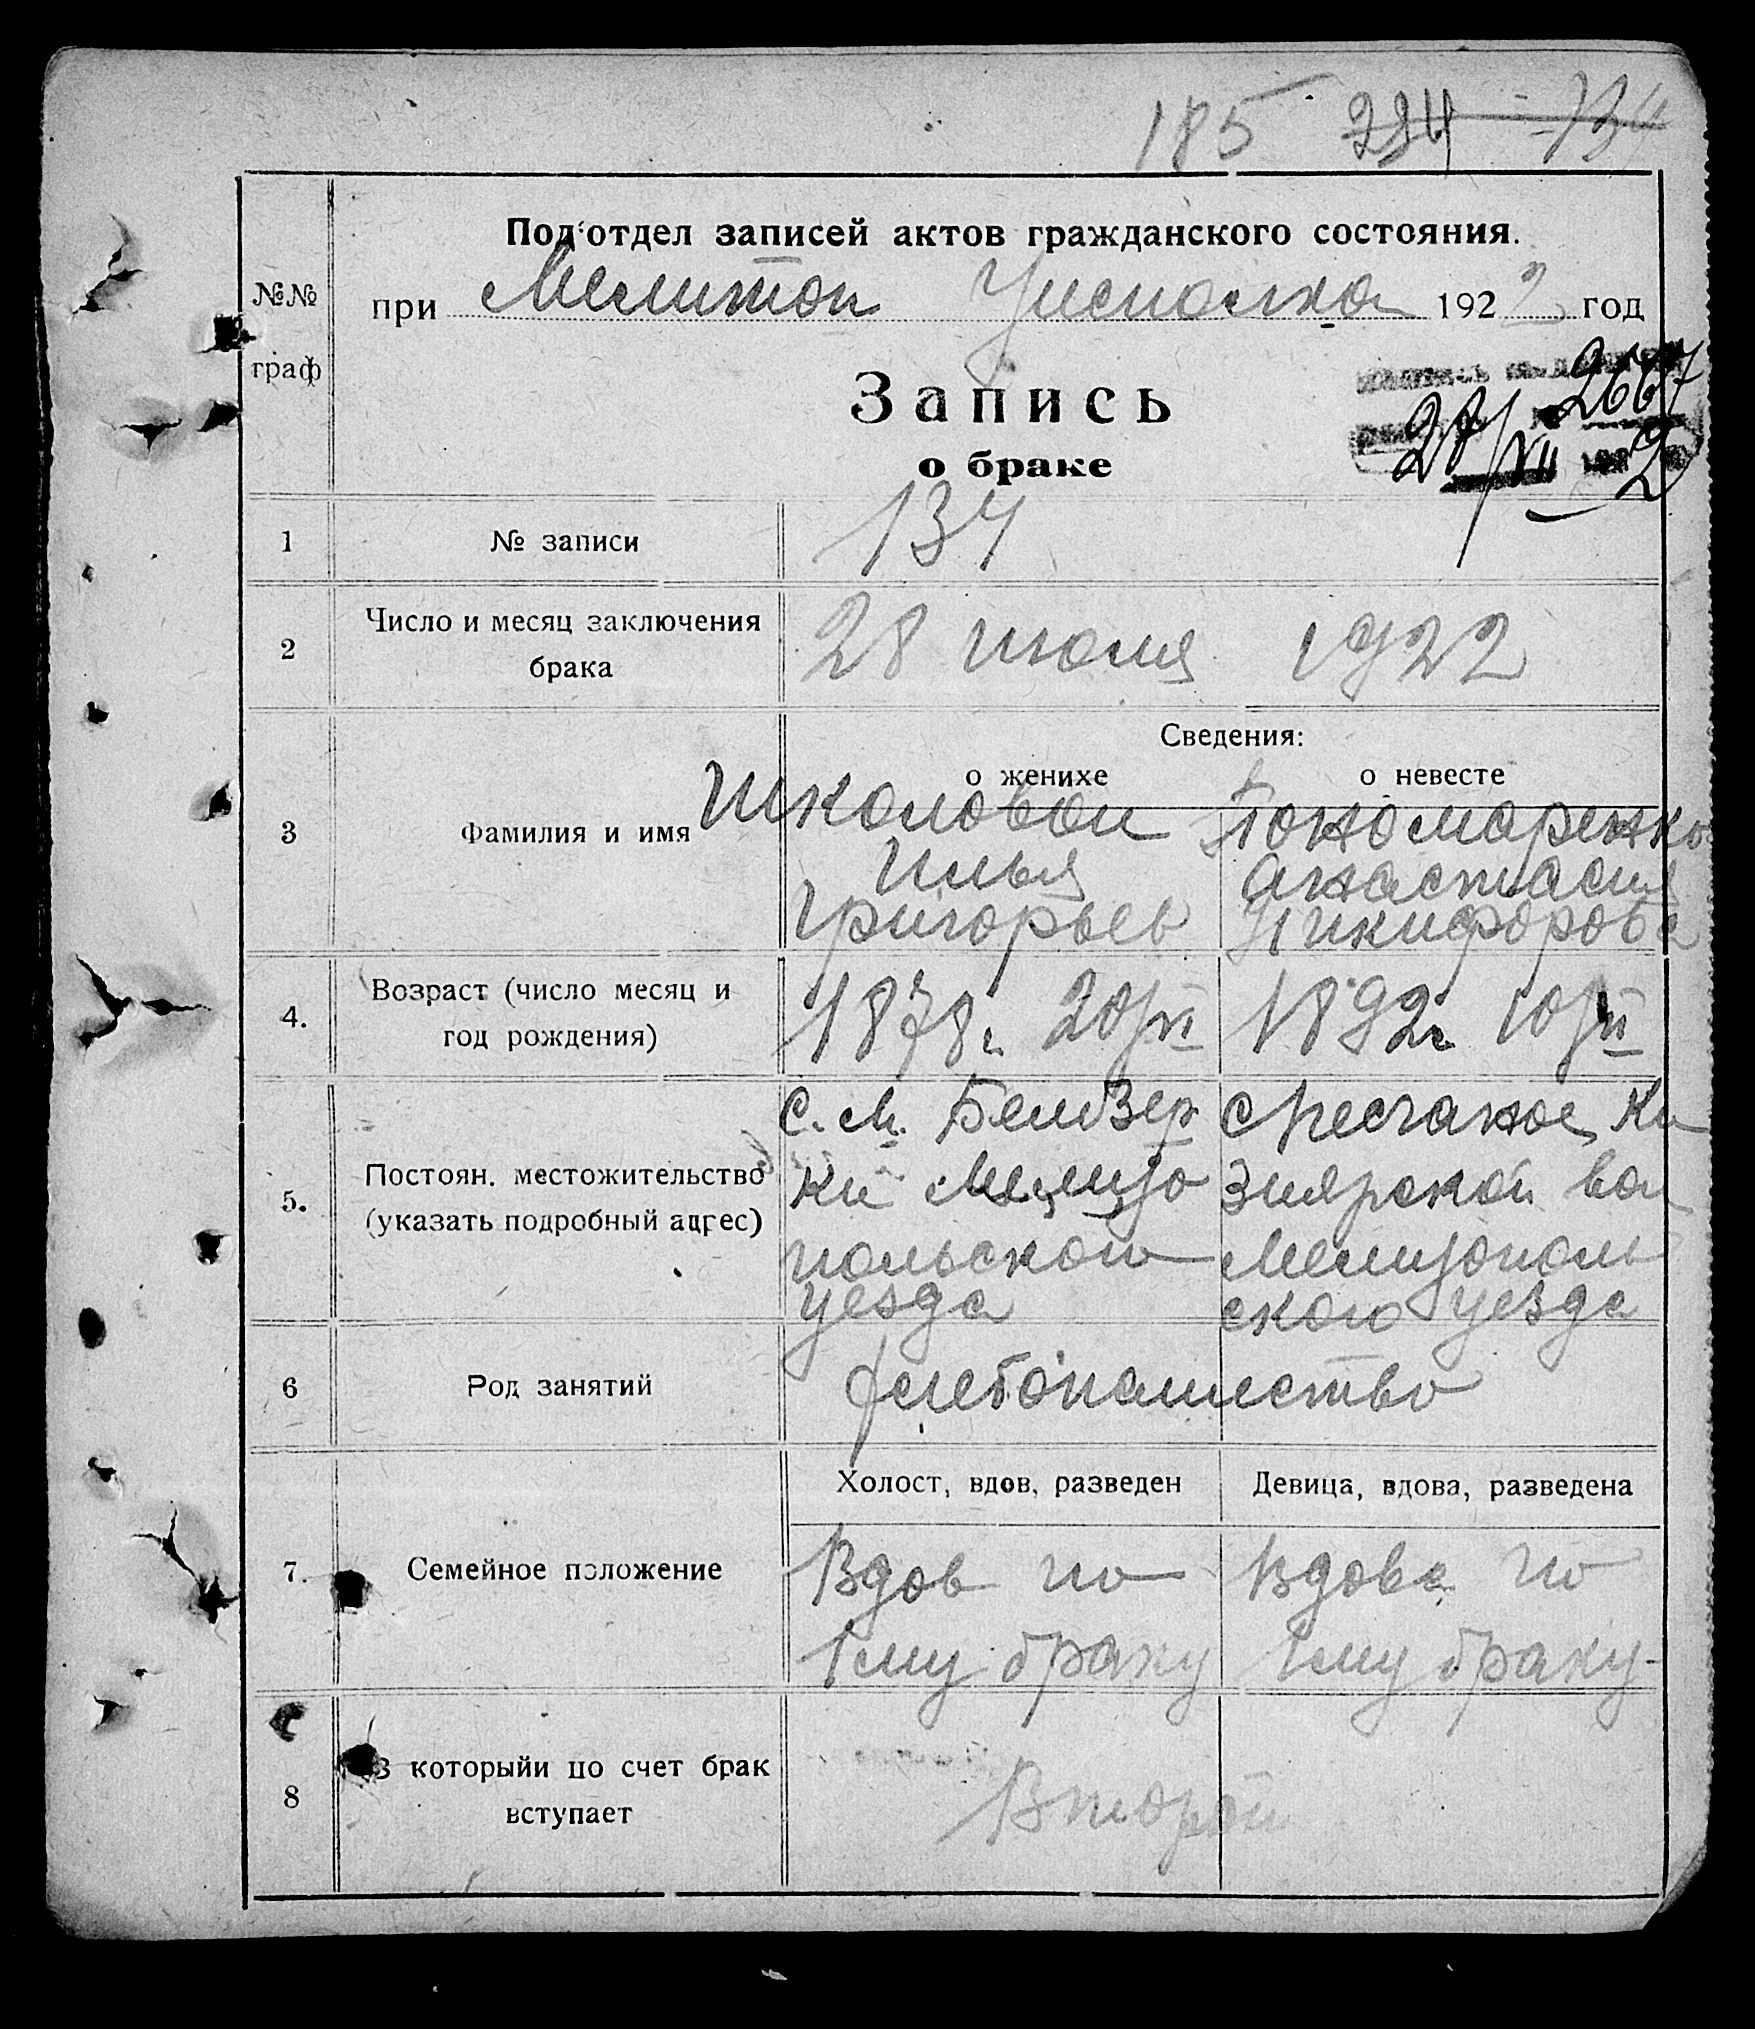 185 234 134
Подотдел записей актов гражданского состояния.
№№
граф
при Мелитоп Уисполка 1922 год
Запись
о браке
2667
27/VII 2
1 № записи 134
2 Число и месяц заключения
брака
28 июля 1922
Сведения:
о женихе о невесте
3 Фамилия и имя
Школовой Пономаренко
Илья Анастасия
Григорьев Никифорова
4. Возраст (число месяц и
год рождения)
1878г. 20/VI 1892г. 10/II
5. Постоян. местожительство
(указать подробный адрес)
с. М. Белозер с Песчаное Ки
ки Мелито зиярской вол
польского Мелитополь
уезда ского уезда
6 Род занятий хлебопашество
Холост, вдов, разведен Девица, вдова, разведена
7. Семейное положение
Вдов по Вдова по
1му браку 1му браку
8 В которыйи по счет брак
вступает
Второй